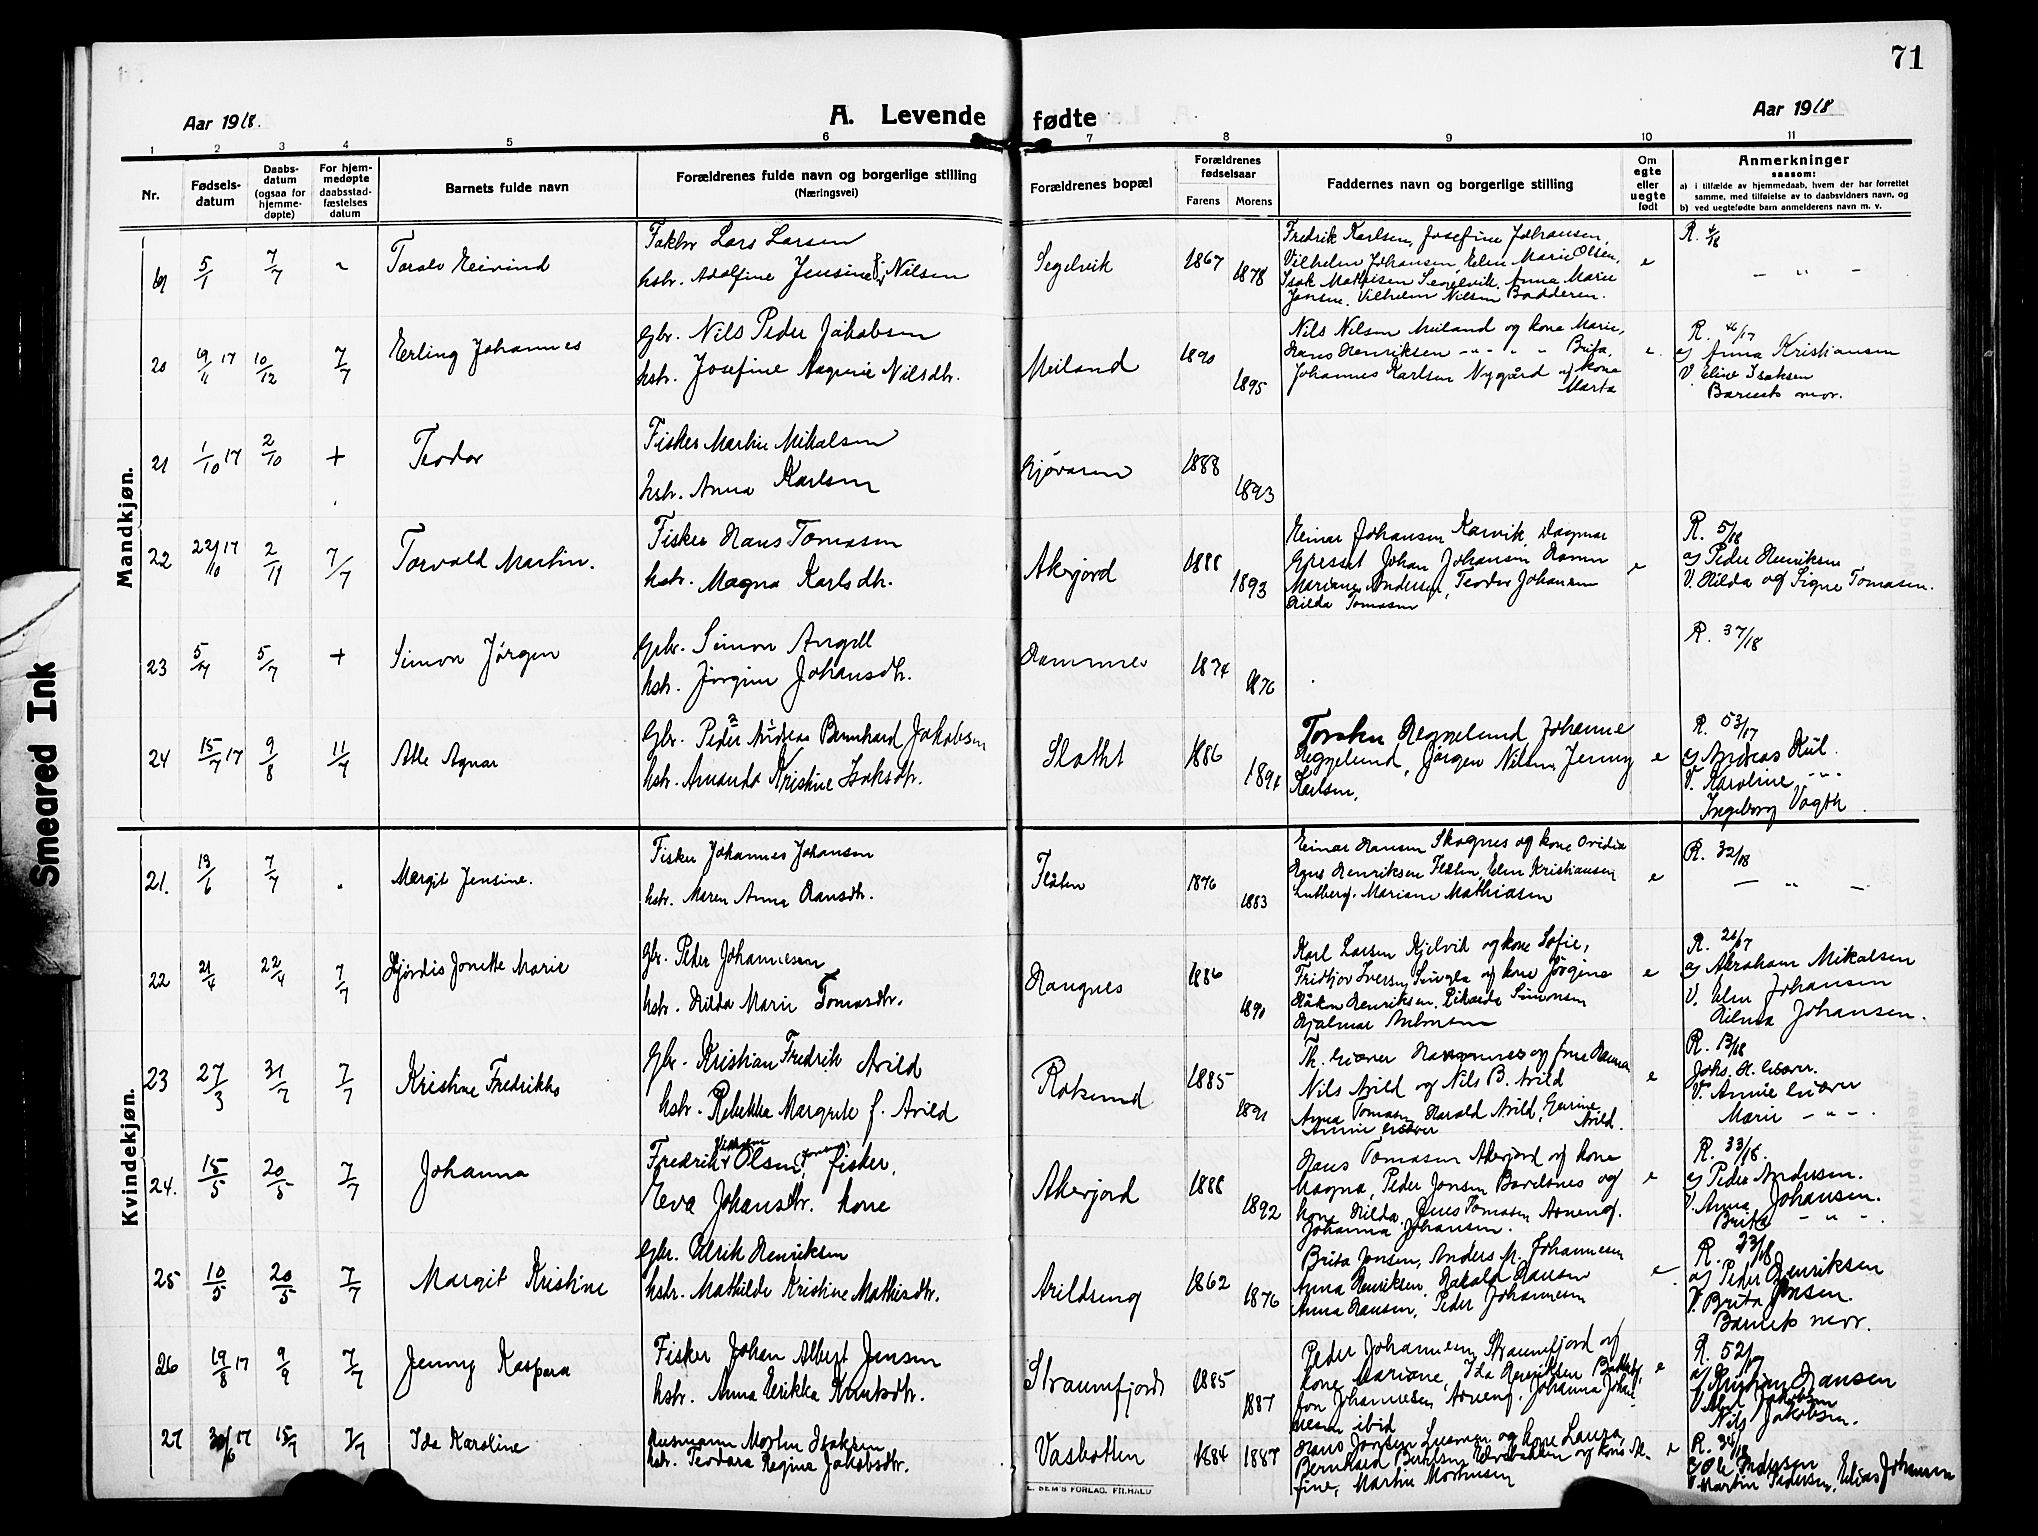 71
Aar 1918.
A. Levende fødte
Aar 1918
1 2 3 4 5 6 7 8 9 10 11
Nr.
Fødsels-
datum
Daabs-
datum
(ogsaa for
hjemme-
døpte)
For hjem-
medøpte
daabsstad-
fæstelses
datum
Barnets fulde navn
Forældrenes fulde navn og borgerlige stilling
(Næringsvei)
Forældrenes bopæl
Forældrenes
fødselsaar
Farens Morens
Faddernes navn og borgerlige stilling
Om
egte
eller
uegte
født
Anmerkninger
saasom:
a) i tilfælde av hjemmedaab, hvem der har forrettet
samme, med tilføielse av to daabsvidners navn, og
b) ved uegtefødte barn anmelderens navn m. v.
Mandkjøn.
19 5/1 7/7 Toralv Eivind
Lars Larsen
hstr. Adolfine Jensine Nilsen
Segelvik 1867 1878
Fredrik Karlsen, Josefine Johansen,
Vilhelm Johansen, Elen Marie Olsen,
Isak Mathisen Segelvik, Anna Marie
Jensen, Vilhelm Nilsen Badderen.
e
20 19/11 17 10/12 7/7 Erling Johannes
Gbr. Nils Peder Jakobsen
hstr. Josefine Nilsdtr.
Meiland 1890 1895
Nils Nilsen Meiland og kone Marie,
Hans Henriksen " " " Brita,
Johannes Karlsen Nygård og kone
Marta
e.
R. 46/17
a) Anna Kristiansen
V. Eline Isaksen
Barnets mor.
21 1/10 17 2/10 + Teodor
Fisker Martin Mikalsen
hstr. Anna Karlsen
Gjøvaren 1888 1893
22 22/10 17 2/11 7/7 Torvald Martin.
Fisker Hans Tomasen
hstr. Magna Karlsdtr.
Akerjord 1888 1893
Einar Johansen Karvik, Dagmar
Johan Johansen
Mariane Andersen, Teodor Johansen
Hilda Tomasen
e
R. 5/18
a) Peder Henriksen
V. Hilda og Signe Tomasen.
23 5/7 5/7 + Simon Jørgen
Gbr. Simon Angell
hstr. Jørgine Johansdtr.
Hamnnes 1874 1876
R. 37/18
24 15/7 17 9/8 11/7 Atle Agnar
Gbr. Peder Andreas Bernhard Jakobsen
hstr. Amanda Kristine Isaksdtr.
1886 1891
Heggelund Johanne
Heggelund, Jørgen Nilsen, Jenny
Karlsen,
e
R. 53/17
a) Andreas Kiil.
V. Karoline "
Ingeborg Vogth.
Kvindekjøn.
21. 13/6 7/7 Margit Jensine.
Fisker Johannes Johansen
hstr. Maren Anna Hansdtr.
Flåten 1876 1883
Einar Hansen Skognes og kone Ovidia
Hans Henriksen Flåten, Elen Kristiansen
Mariane Mathiasen
e
R. 32/18
22 21/4 22/4 7/7 Hjørdis Jonette Marie
Gbr. Peder Johannesen
hstr. Hilda Marie Tomasdtr.
Haugnes 1886 1890
Karl Larsen Kjelvik og kone Sofie,
Fridtjov Iversen og kone Jørgine
Håkon Henriksen, Simonsen
Hjalmar
e
R. 26/17
a) Abraham Mikalsen
V. Elen Johansen
Hilma Johansen.
23 27/3 31/7 7/7 Kristine Fredrikke
Gbr. Kristian Fredrik Arild
hstr. Rebekka Margrete f. Arild
Roksund 1885 1891
Th. Giæver Havnnes og frue Hanna
Nils Arild og Nils B. Arild
Anna Tomasen, Harald Arild,
Annie Giæver Arild.
e
R. 13/18
Johs. H. Giæver.
V. Annie Giæver
Marie "
24. 15/5 20/5 7/7 Johanna
Fredrik Olsen, fisker,
Eva Johansdtr. kone
Akerjord 1888 1892
Hans Tomasen Akerjord og kone
Magna, Peder Jensen og
kone Hilda, Jens Tomasen
Johanna Johansen.
e
R. 33/18.
a) Peder Andersen.
V. Anna Johansen.
Brita "
25 10/5 20/5 7/7 Margit Kristine
Gbr. Ulrik Henriksen
hstr. Mathilde Kristine Mathisdtr.
Arildseng 1862 1876
Brita Jensen, Anders M. Johannesen
Anna Henriksen, Harald Hansen
Anna Hansen, Peder Johannesen
e
R. 23/18
a) Peder Henriksen
V. Brita Jensen.
Barnets mor.
26 19/8 17 9/9 7/7 Jenny Kaspara
Fisker Johan Albert Jensen
hstr. Anna Erikka Knutsdtr.
Straumfjord 1885 1887
Peder Johannesen, Straumfjord og
kone Mariane, Ida Henriksen
Johannesen, Johanna Johan-
nesen ibid
e
R. 52/
a) Kristian Hansen
Nils Jakobsen.
27 17 15/7 7/7 Ida Karoline
Husmann Morten Isaksen
hstr. Teodora Regine Jakobsdtr.
Vasbotten 1884 1887
Hans Jensen og kone Laura,
Bernhard og kone
fine, Martin Mortensen
e
a) Ole Andersen
V. Martin Pedersen, Elias Johansen
E. SEM'S FORLAG, FR.HALD
Smeared Ink